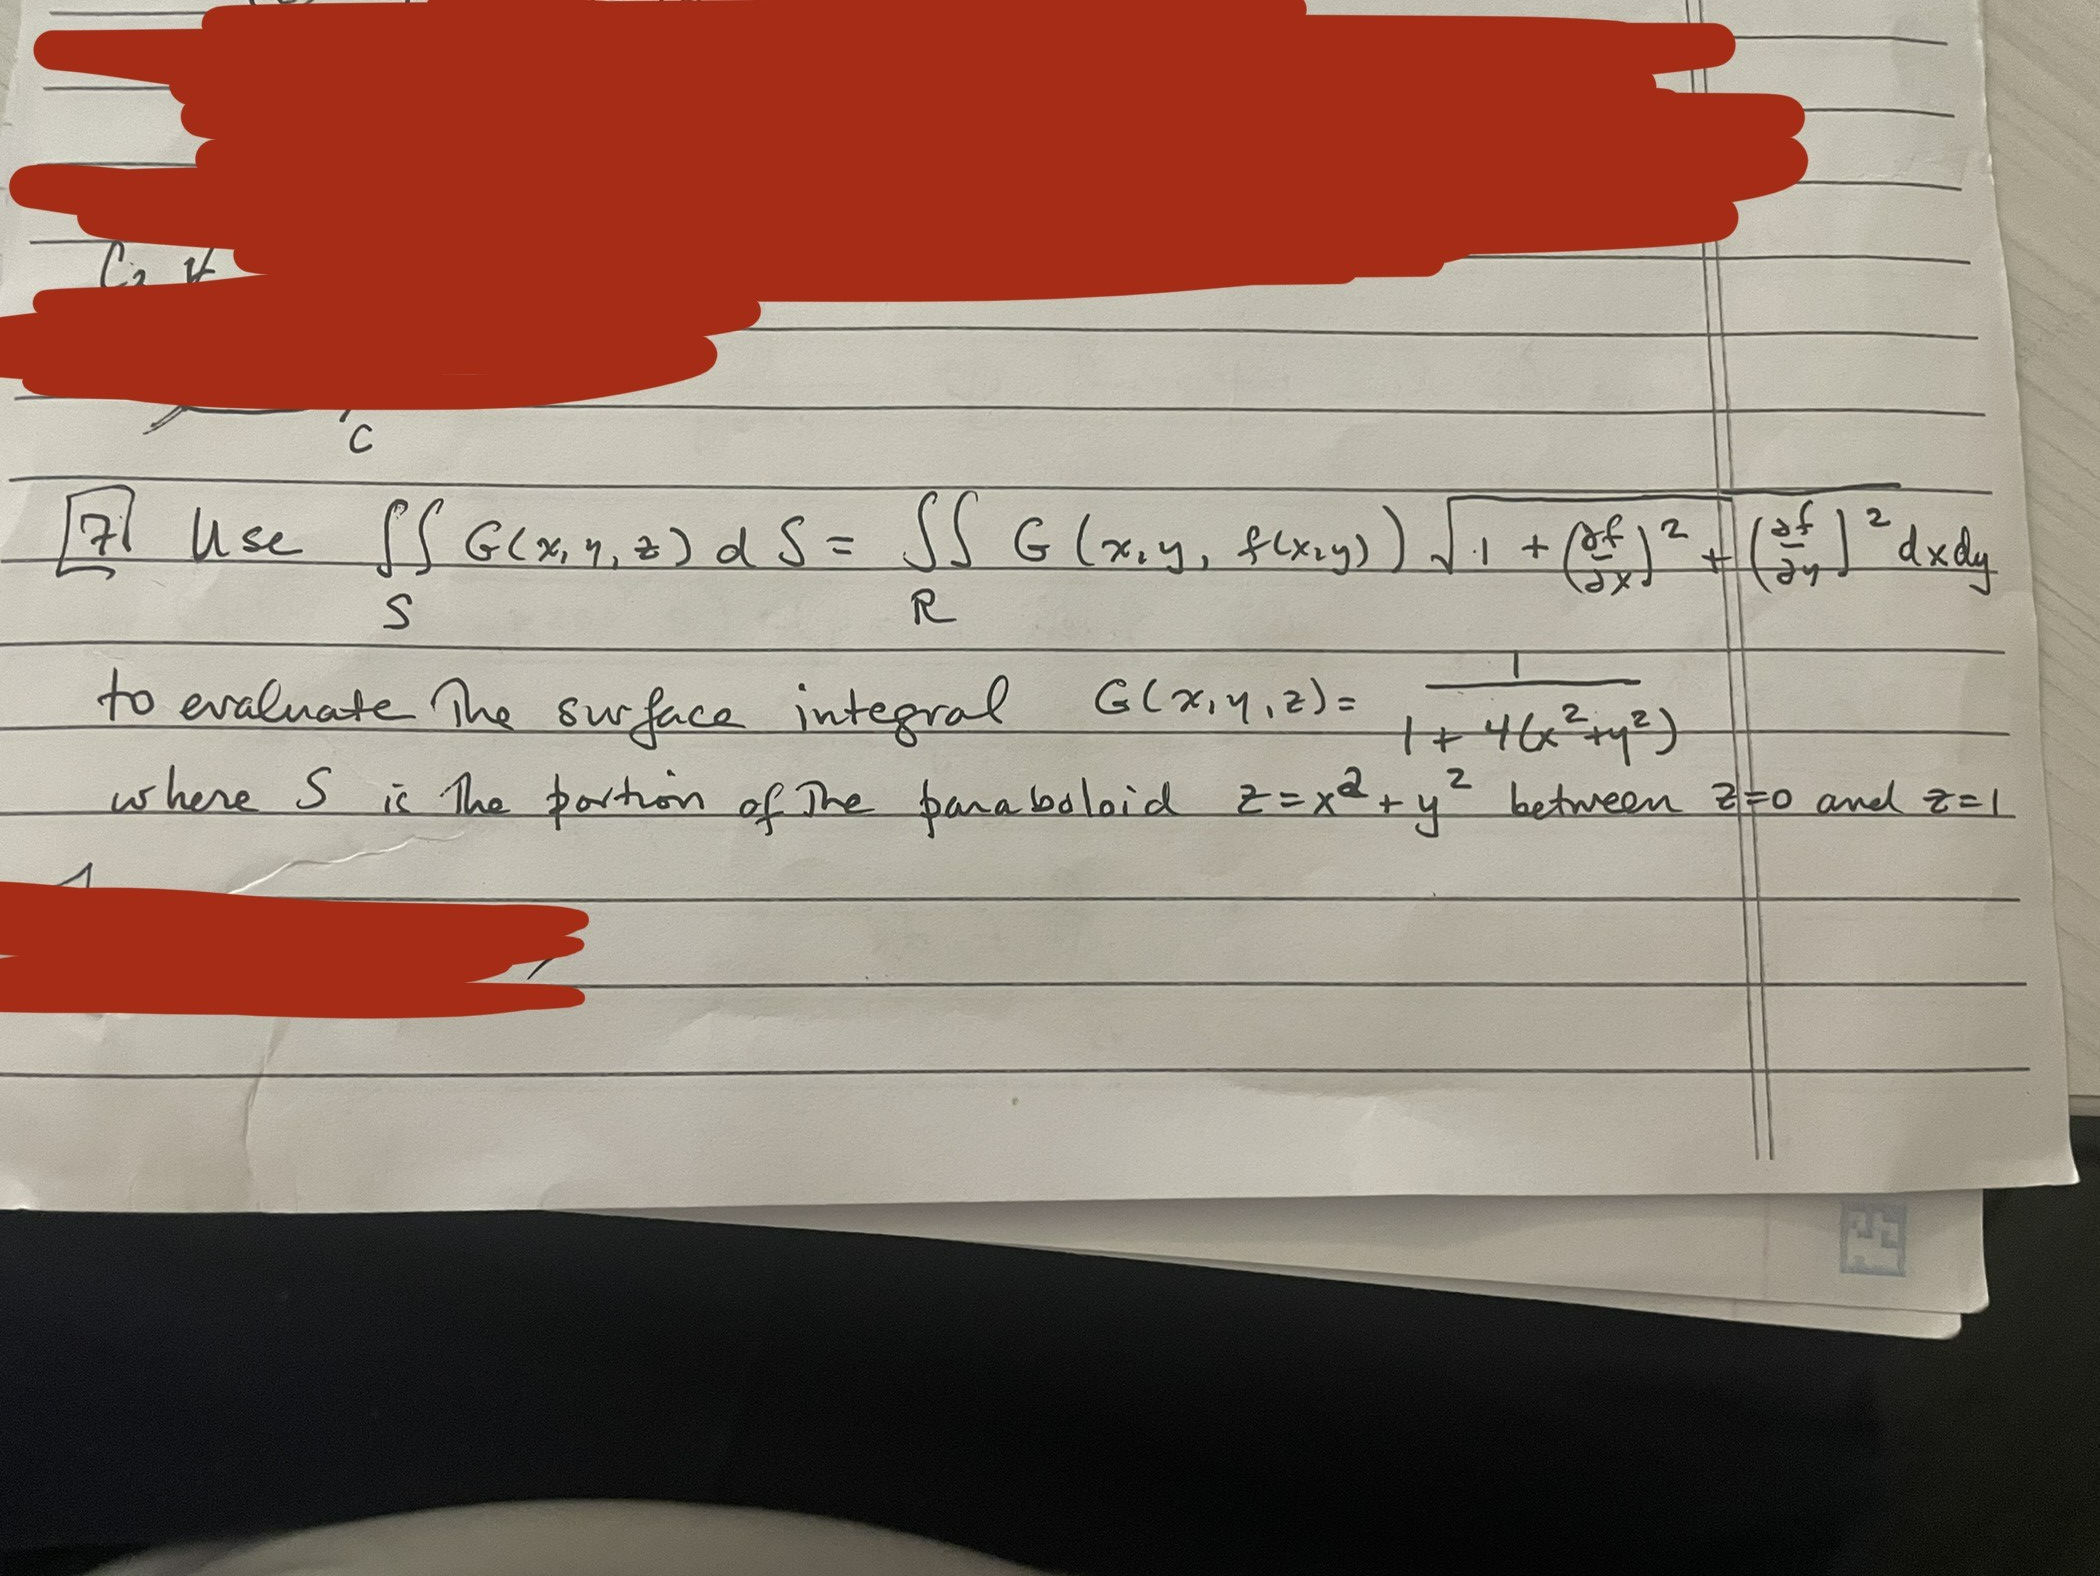 C
[7] Use ∬_S G(x, y, z) dS = ∬_R G(x, y, f(x,y)) √(1 + (∂f/∂x)² + (∂f/∂y)²) dxdy
to evaluate the surface integral G(x, y, z) = 1/(1 + 4(x²+y²))
where S is the portion of the paraboloid z = x² + y² between z=0 and z=1